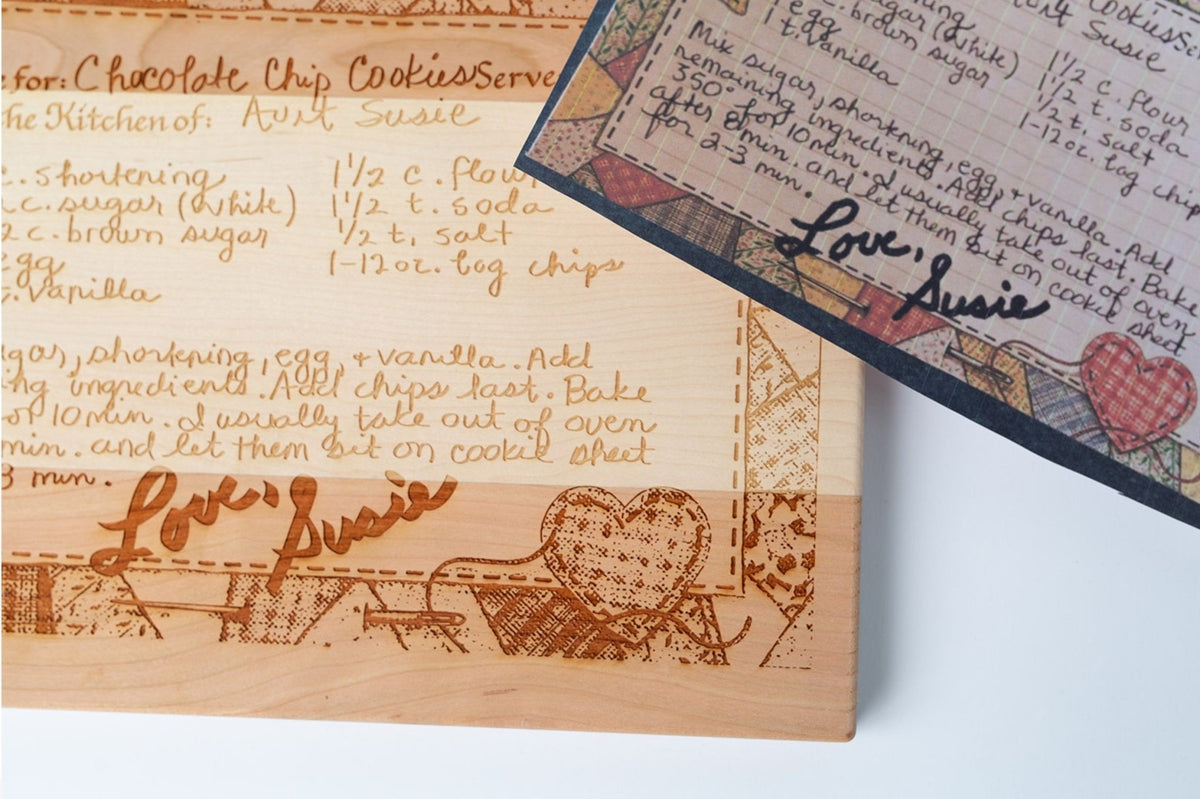 for: Chocolate Chip Cookies Serve
the Kitchen of: Aunt Susie
c. shortening 1 1/2 c. flour
c. sugar (white) 1 1/2 t. soda
2 c. brown sugar 1/2 t. salt
egg 1-12 oz. bag chips
t. vanilla
sugar, shortening, egg, + vanilla. Add
ing ingredients. Add chips last. Bake
for 10 min. I usually take out of oven
min. and let them sit on cookie sheet
3 min.
Love, Susie
Cookies
Aunt Susie
ening 1 1/2 c. flour
sugar (white) 1 1/2 t. soda
c. brown sugar 1/2 t. salt
egg 1-12 oz. bag chips
t. vanilla
Mix sugar, shortening, egg, + vanilla. Add
remaining ingredients. Add chips last. Bake
350° for 10 min. I usually take out of oven
after 8 min. and let them sit on cookie sheet
for 2-3 min.
Love, Susie